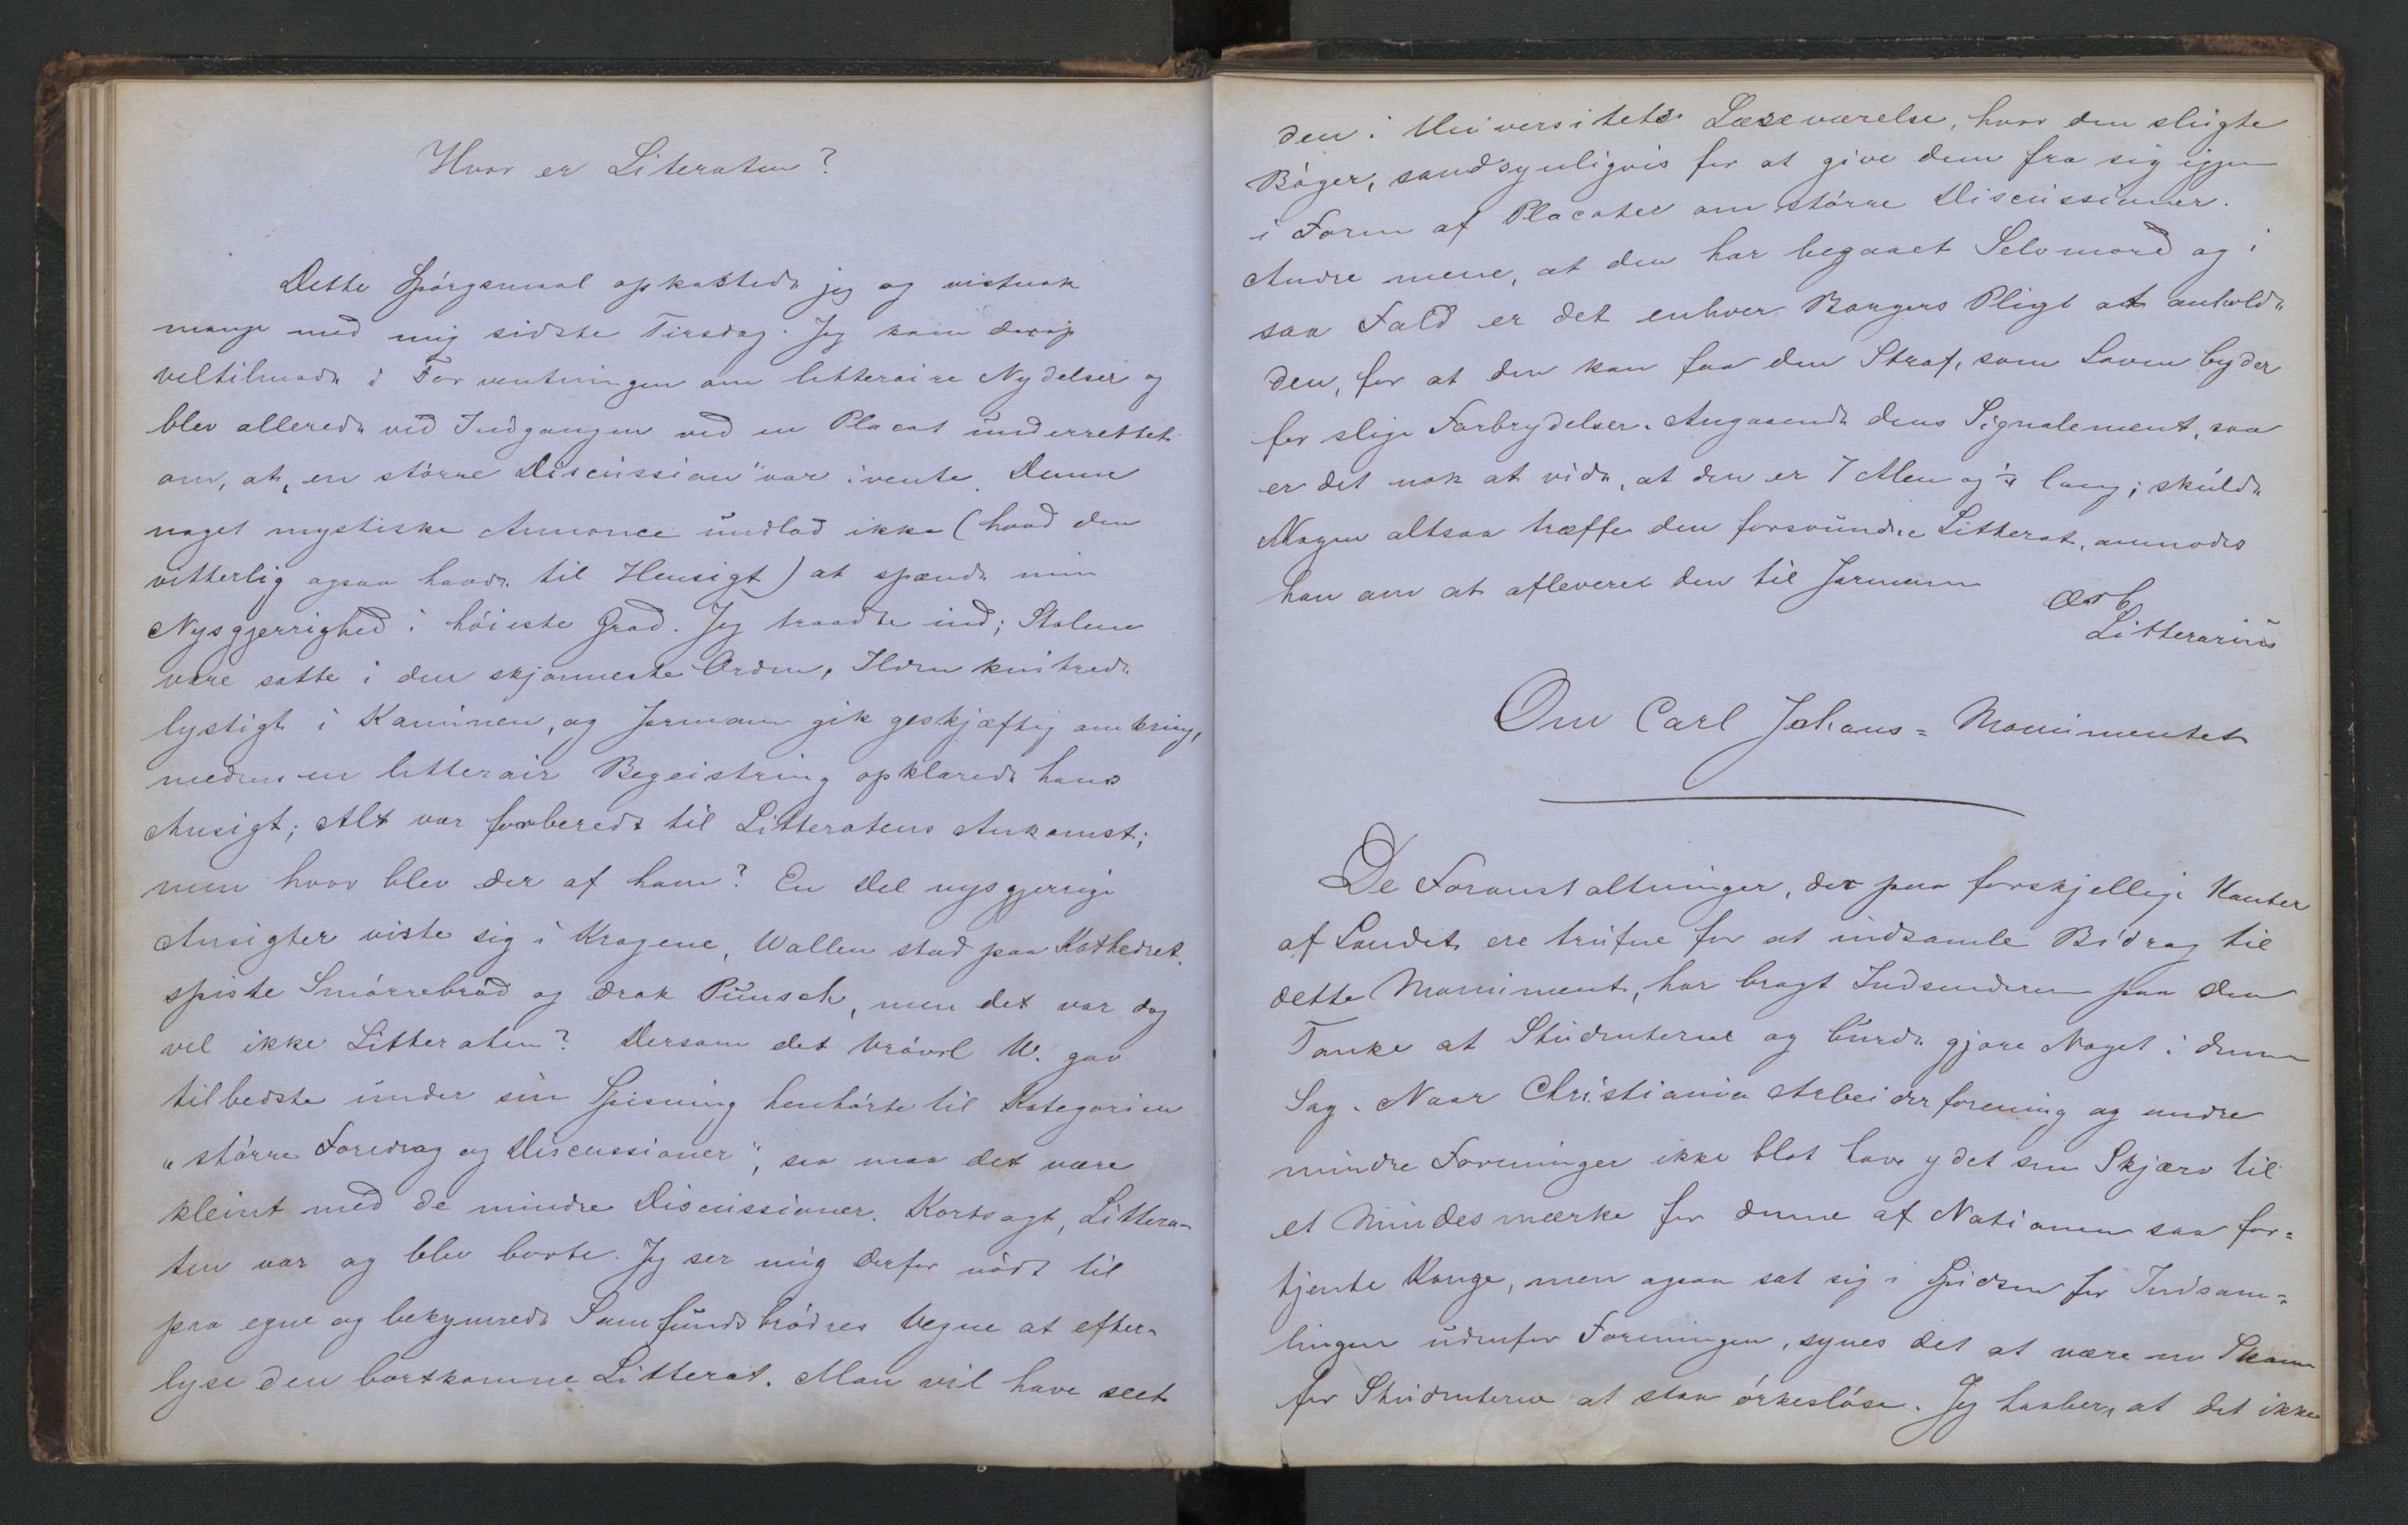 Hvor er Literaten?
Dette Spørgsmaal opkastede jeg og vistnok
mange med mig sidste Tirsdag. Jeg kom derop
veltilmode i Forventningen om litteraire Nydelser og
blev allerede ved Indgangen ved en Placat underrettet
om, at "en større Discussion" var ivente. Denne
noget mystiske Annonce undlod ikke (hvad den
vitterlig ogsaa havde til Hensigt) at spænde min
Nysgjerrighed i høieste Grad. Jeg traadte ind; Stolene
vare satte i den skjønneste Orden, Ilden knitrede
lystigt i Kaminen, og Jormann gik geskjæftig omkring,
medens en litterair Begeistring opklarede hans
Ansigt; Alt var forberedt til Litteratens Ankomst;
men hvor blev der af ham? En Del nysgjerrige
Ansigter viste sig i Krogene, Wallen stod paa Kathedret,
spiste Smørrebrød og drak Punsch, men det var dog
vel ikke Litteraten? Dersom det Vrøvl W. gav
tilbedste under sin Spisning henhørte til Kategorien
"større Foredrag og Discussioner", saa maa det være
kleint med de mindre Discussioner. Kortsagt, Littera-
ten var og blev borte. Jeg ser mig derfor nødt til
paa egne og bekymrede Samfundsbrødres Vegne at efter-
lyse den bortkomne Litterat. Man vil have seet
den i Universitets Læseværelse, hvor den slugte
Bøger, sandsynligvis for at give dem fra sig igjen
i Form af Placater om større Discussioner.
Andre mene, at den har begaaet Selvmord og i
saa Fald er det enhver Borgers Pligt at anholde
den, for at den kan faa den Straf, som Loven byder
for slige Forbrydelser. Angaaende dens Signalement, saa
er det nok at vide, at den er 7 Alen og lang; skulde
Nogen altsaa træffe den forsvundne Litterat, anmodes
han om at afleverer den til Jormann
Litterarius
Om Carl Johans-Monumentet
De Foranstaltninger, der paa forskjellige Kanter
af Landet ere trufne for at indsamle Bidrag til
dette Monument, har bragt Indsenderen paa den
Tanke at Studenterne og burde gjøre Noget i denne
Sag. Naar Christiania Arbeiderforening og andre
mindre Foreninger ikke blot have ydet sin Skjærv til
et Mindesmærke for denne af Nationen saa for-
tjente Konge, men ogsaa sat sig i Spidsen for Indsam-
lingen udenfor Foreningen, synes det at være en Skam
for Studenterne at staa ørkesløse. Jeg haaber, at det ikke